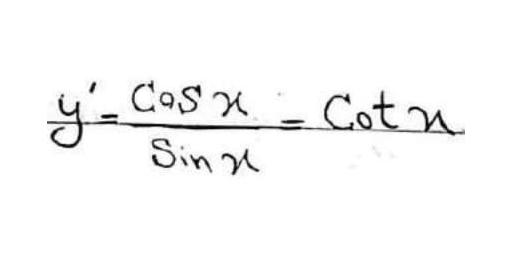 y' = Cos x / Sin x = Cot x